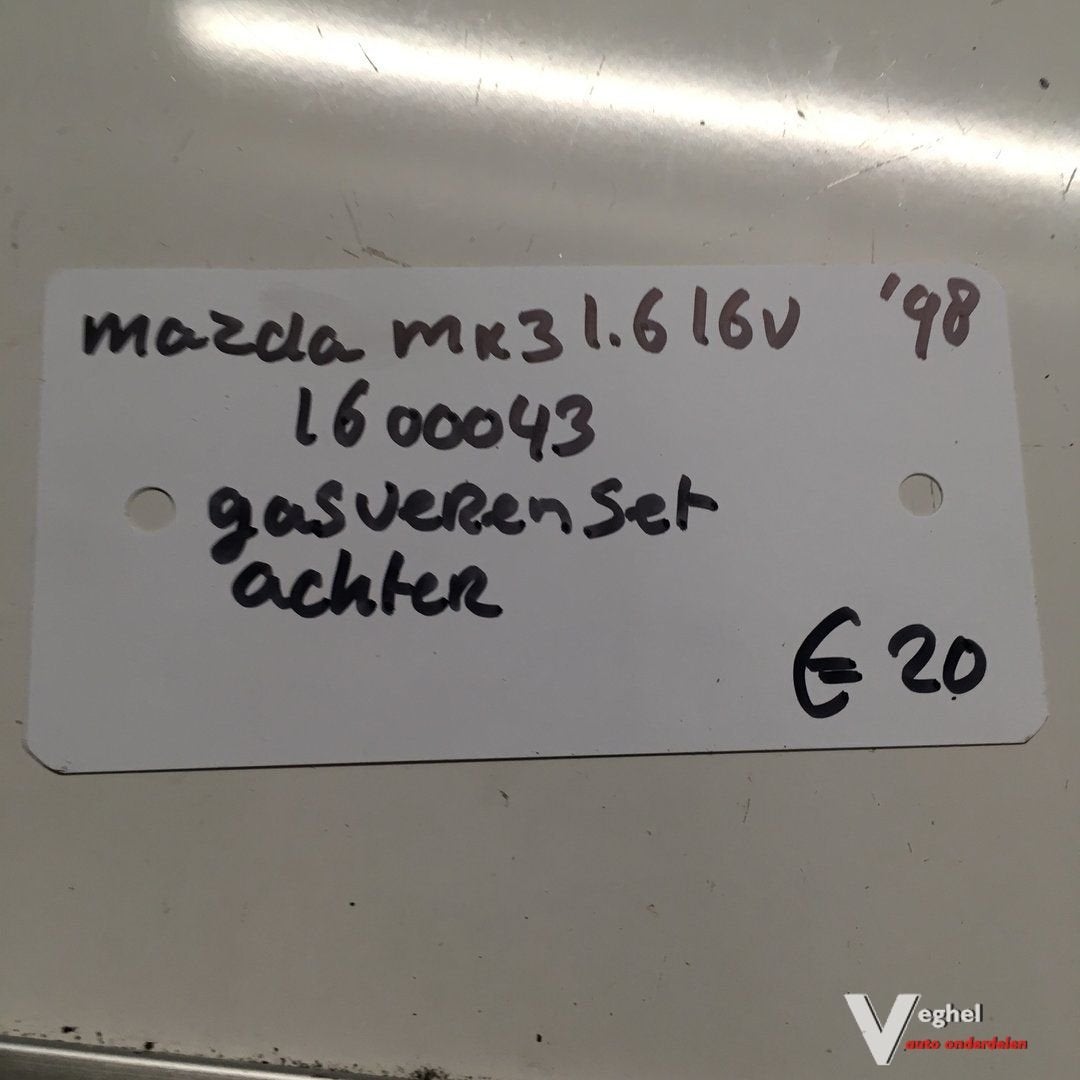 mazda mk3 1.6 16v '98
1600043
gasveren set
achter
€ 20
Veghel
auto onderdelen